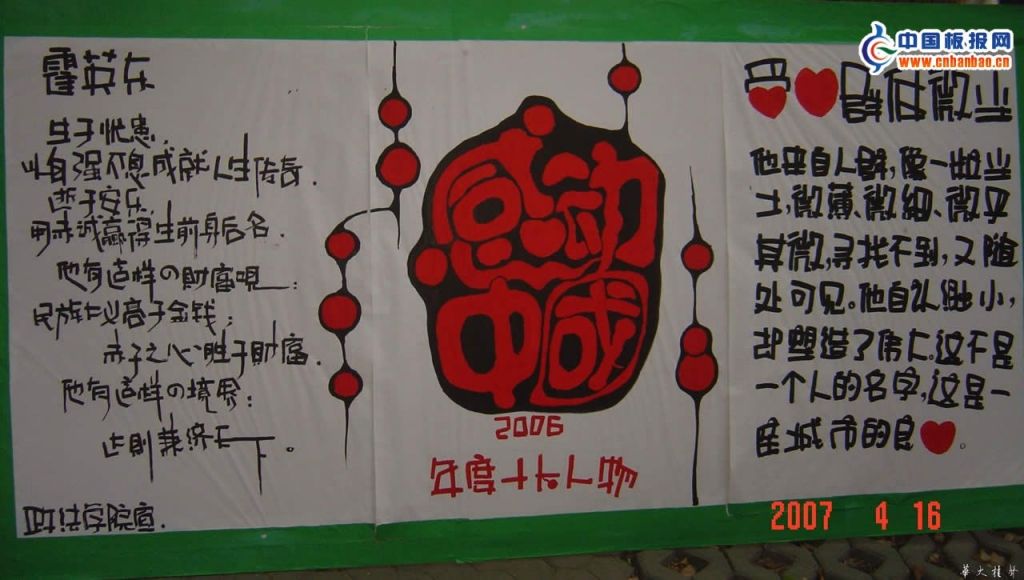 霍英东
生于忧患.
以自强不息成就人生传奇.
逝于安乐.
用赤诚赢得生前身后名.
他有这样の财富观:
民族仁义高于金钱;
赤子之心胜于财富.
他有这样の境界:
达则兼济天下。
政法学院宣.
感动
中國
2006
年度十大人物
群体微尘
他来自人群,像一粒尘
土,微薄、微细、微乎
其微,寻找不到,又随
处可见。他自认渺小,
却塑造了伟大。这不是
一个人的名字,这是一
座城市的良❤。
中国板报网
www.cnbanbao.cn
2007 4 16